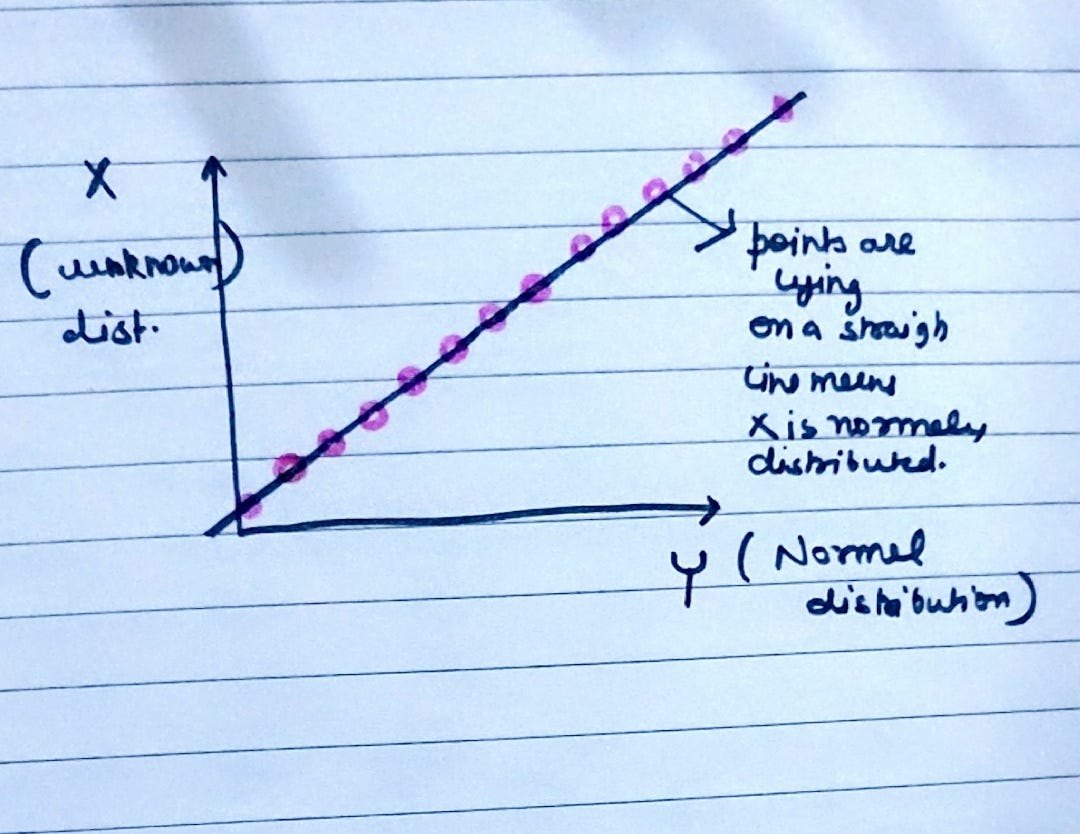 X
(unknown)
dist.
points are
lying
on a straigh
line means
X is normaly
distributed.
Y ( Normal
distribution)